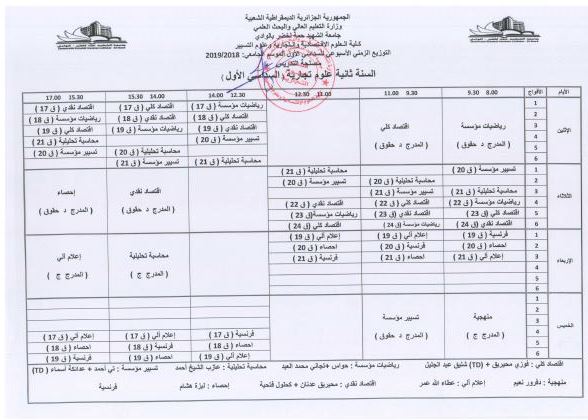 الجمهورية الجزائرية الديمقراطية الشعبية
وزارة التعليم العالي والبحث العلمي
جامعة الشهيد حمه لخضر بالوادي
كلية العلوم الاقتصادية والتجارية وعلوم التسيير
التوزيع الزمني الأسبوعي للسداسي الأول الموسم الجامعي: 2019/2018
مصلحة التدريس
السنة ثانية علوم تجارية ( السداسي الأول )
الأيام الأفواج 9.30 8.00 11.00 9.30 12.30 11.00 14.00 12.30 15.30 14.00 17.00 15.30
الإثنين
1 رياضيات مؤسسة ( ق 17 ) اقتصاد كلي ( ق 17 ) اقتصاد نقدي ( ق 17 )
2 اقتصاد كلي ( ق 18 ) اقتصاد نقدي ( ق 18 ) رياضيات مؤسسة ( ق 18 )
3 رياضيات مؤسسة اقتصاد كلي اقتصاد نقدي ( ق 19 ) رياضيات مؤسسة ( ق 19 ) اقتصاد كلي ( ق 19 )
4 ( المدرج د حقوق ) ( المدرج د حقوق ) تسيير مؤسسة ( ق 20 ) محاسبة تحليلية ( ق 21 )
5 محاسبة تحليلية ( ق 20 ) تسيير مؤسسة ( ق 20 )
6 محاسبة تحليلية ( ق 21 ) تسيير مؤسسة ( ق 21 )
الثلاثاء
1 تسيير مؤسسة ( ق 20 ) محاسبة تحليلية ( ق 21 )
2 محاسبة تحليلية ( ق 20 ) تسيير مؤسسة ( ق 20 )
3 محاسبة تحليلية ( ق 21 ) تسيير مؤسسة ( ق 21 ) اقتصاد نقدي إحصاء
4 رياضيات مؤسسة ( ق 22 ) اقتصاد كلي ( ق 22 ) اقتصاد نقدي ( ق 22 ) ( المدرج د حقوق ) ( المدرج د حقوق )
5 اقتصاد كلي (ق 23 ) اقتصاد نقدي (ق 23 ) رياضيات مؤسسة(ق 23 )
6 اقتصاد نقدي (ق 24 ) رياضيات مؤسسة (ق 24 ) اقتصاد كلي (ق 24 )
الإربعاء
1 فرنسية ( ق 19 ) إعلام آلي ( ق 19 )
2 احصاء ( ق 20 ) فرنسية ( ق 20 ) احصاء ( ق 20 ) محاسبة تحليلية إعلام آلي
3 إعلام آلي ( ق 21 ) احصاء ( ق 21 ) فرنسية ( ق 21 ) ( المدرج ج ) ( المدرج ج )
4
5
6
الخميس
1
2 منهجية تسيير مؤسسة
3 ( المدرج ج ) ( المدرج د حقوق )
4 فرنسية ( ق 17 ) احصاء ( ق 17 ) إعلام آلي ( ق 17 )
5 احصاء ( ق 18 ) إعلام آلي ( ق 18 ) فرنسية ( ق 18 )
6 إعلام آلي ( ق 19 ) احصاء ( ق 19 ) فرنسية ( ق 19 )
اقتصاد كلي : فوزي محيريق + (TD) شفيق عبد الجليل رياضيات مؤسسة : حواس +تجاني محمد العيد محاسبة تحليلية : عازب الشيخ أحمد تسيير مؤسسة : تي أحمد + عدائكة أسماء ( TD)
منهجية : دفرور نعيم إعلام آلي : عطاء الله عمر اقتصاد نقدي : محيريق عدنان + كحلول فتحية إحصاء : ليزة هشام فرنسية